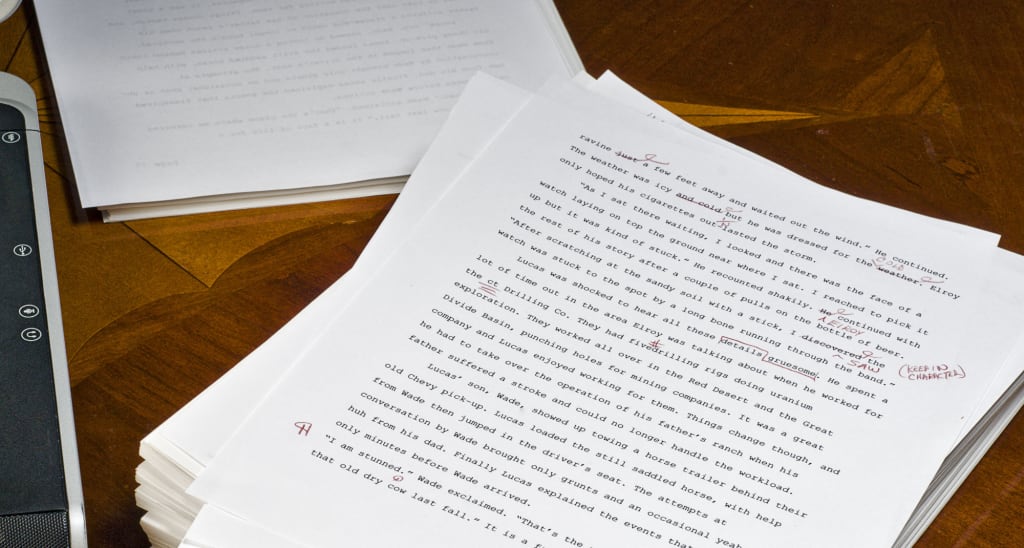 ravine just a few feet away and waited out the wind." He continued.
COLD
The weather was icy and cold but he was dressed for the weather. Elroy
only hoped his cigarettes outlasted the storm.
"As I sat there waiting, I looked and there was the face of a
watch laying on top the ground near where I sat. I reached to pick it
up but it was kind of stuck." He recounted shakily. He continued with
ELROY
the rest of his story after a couple of pulls on the bottle of beer.
"After scratching at the sandy soil with a stick, I discovered the
SAW
(KEEP IN
CHARACTER)
watch was stuck to the spot by a long bone running through the band."
Lucas was shocked to hear all these details gruesome. He spent a
lot of time out in the area Elroy was talking about when he worked for
the ct Drilling Co. They had fivedrilling rigs doing uranium
exploration. They worked all over in the Red Desert and the Great
Divide Basin, punching holes for mining companies. It was a great
company and Lucas enjoyed working for them. Things change though, and
he had to take over the operation of his father's ranch when his
father suffered a stroke and could no longer handle the workload.
Lucas' son, Wade, showed up towing a horse trailer behind their
old Chevy pick-up. Lucas loaded the still saddled horse, with help
from Wade then jumped in the driver's seat. The attempts at
conversation by Wade brought only grunts and an occasional yeah
huh from his dad. Finally Lucas explained the events that
only minutes before Wade arrived.
"I am stunned." Wade exclaimed. "That's the
that old dry cow last fall." "It is a